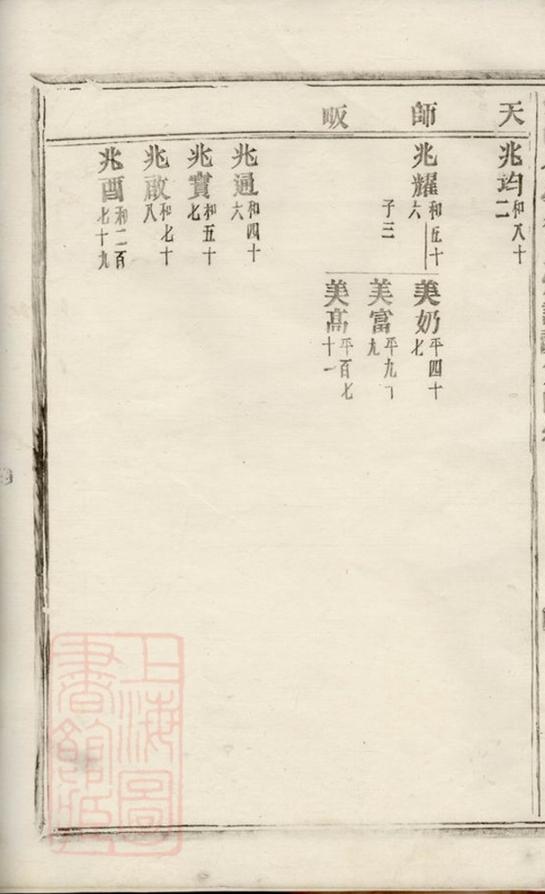 天
師
畈
兆均 和八十二
兆耀 和五十六
子三
美奶 平四十七
美富 平九十九
美高 平百七十一
兆通 和四十六
兆寶 和五十七
兆啟 和七十八
兆酉 和二百七十九
上海圖
書館藏